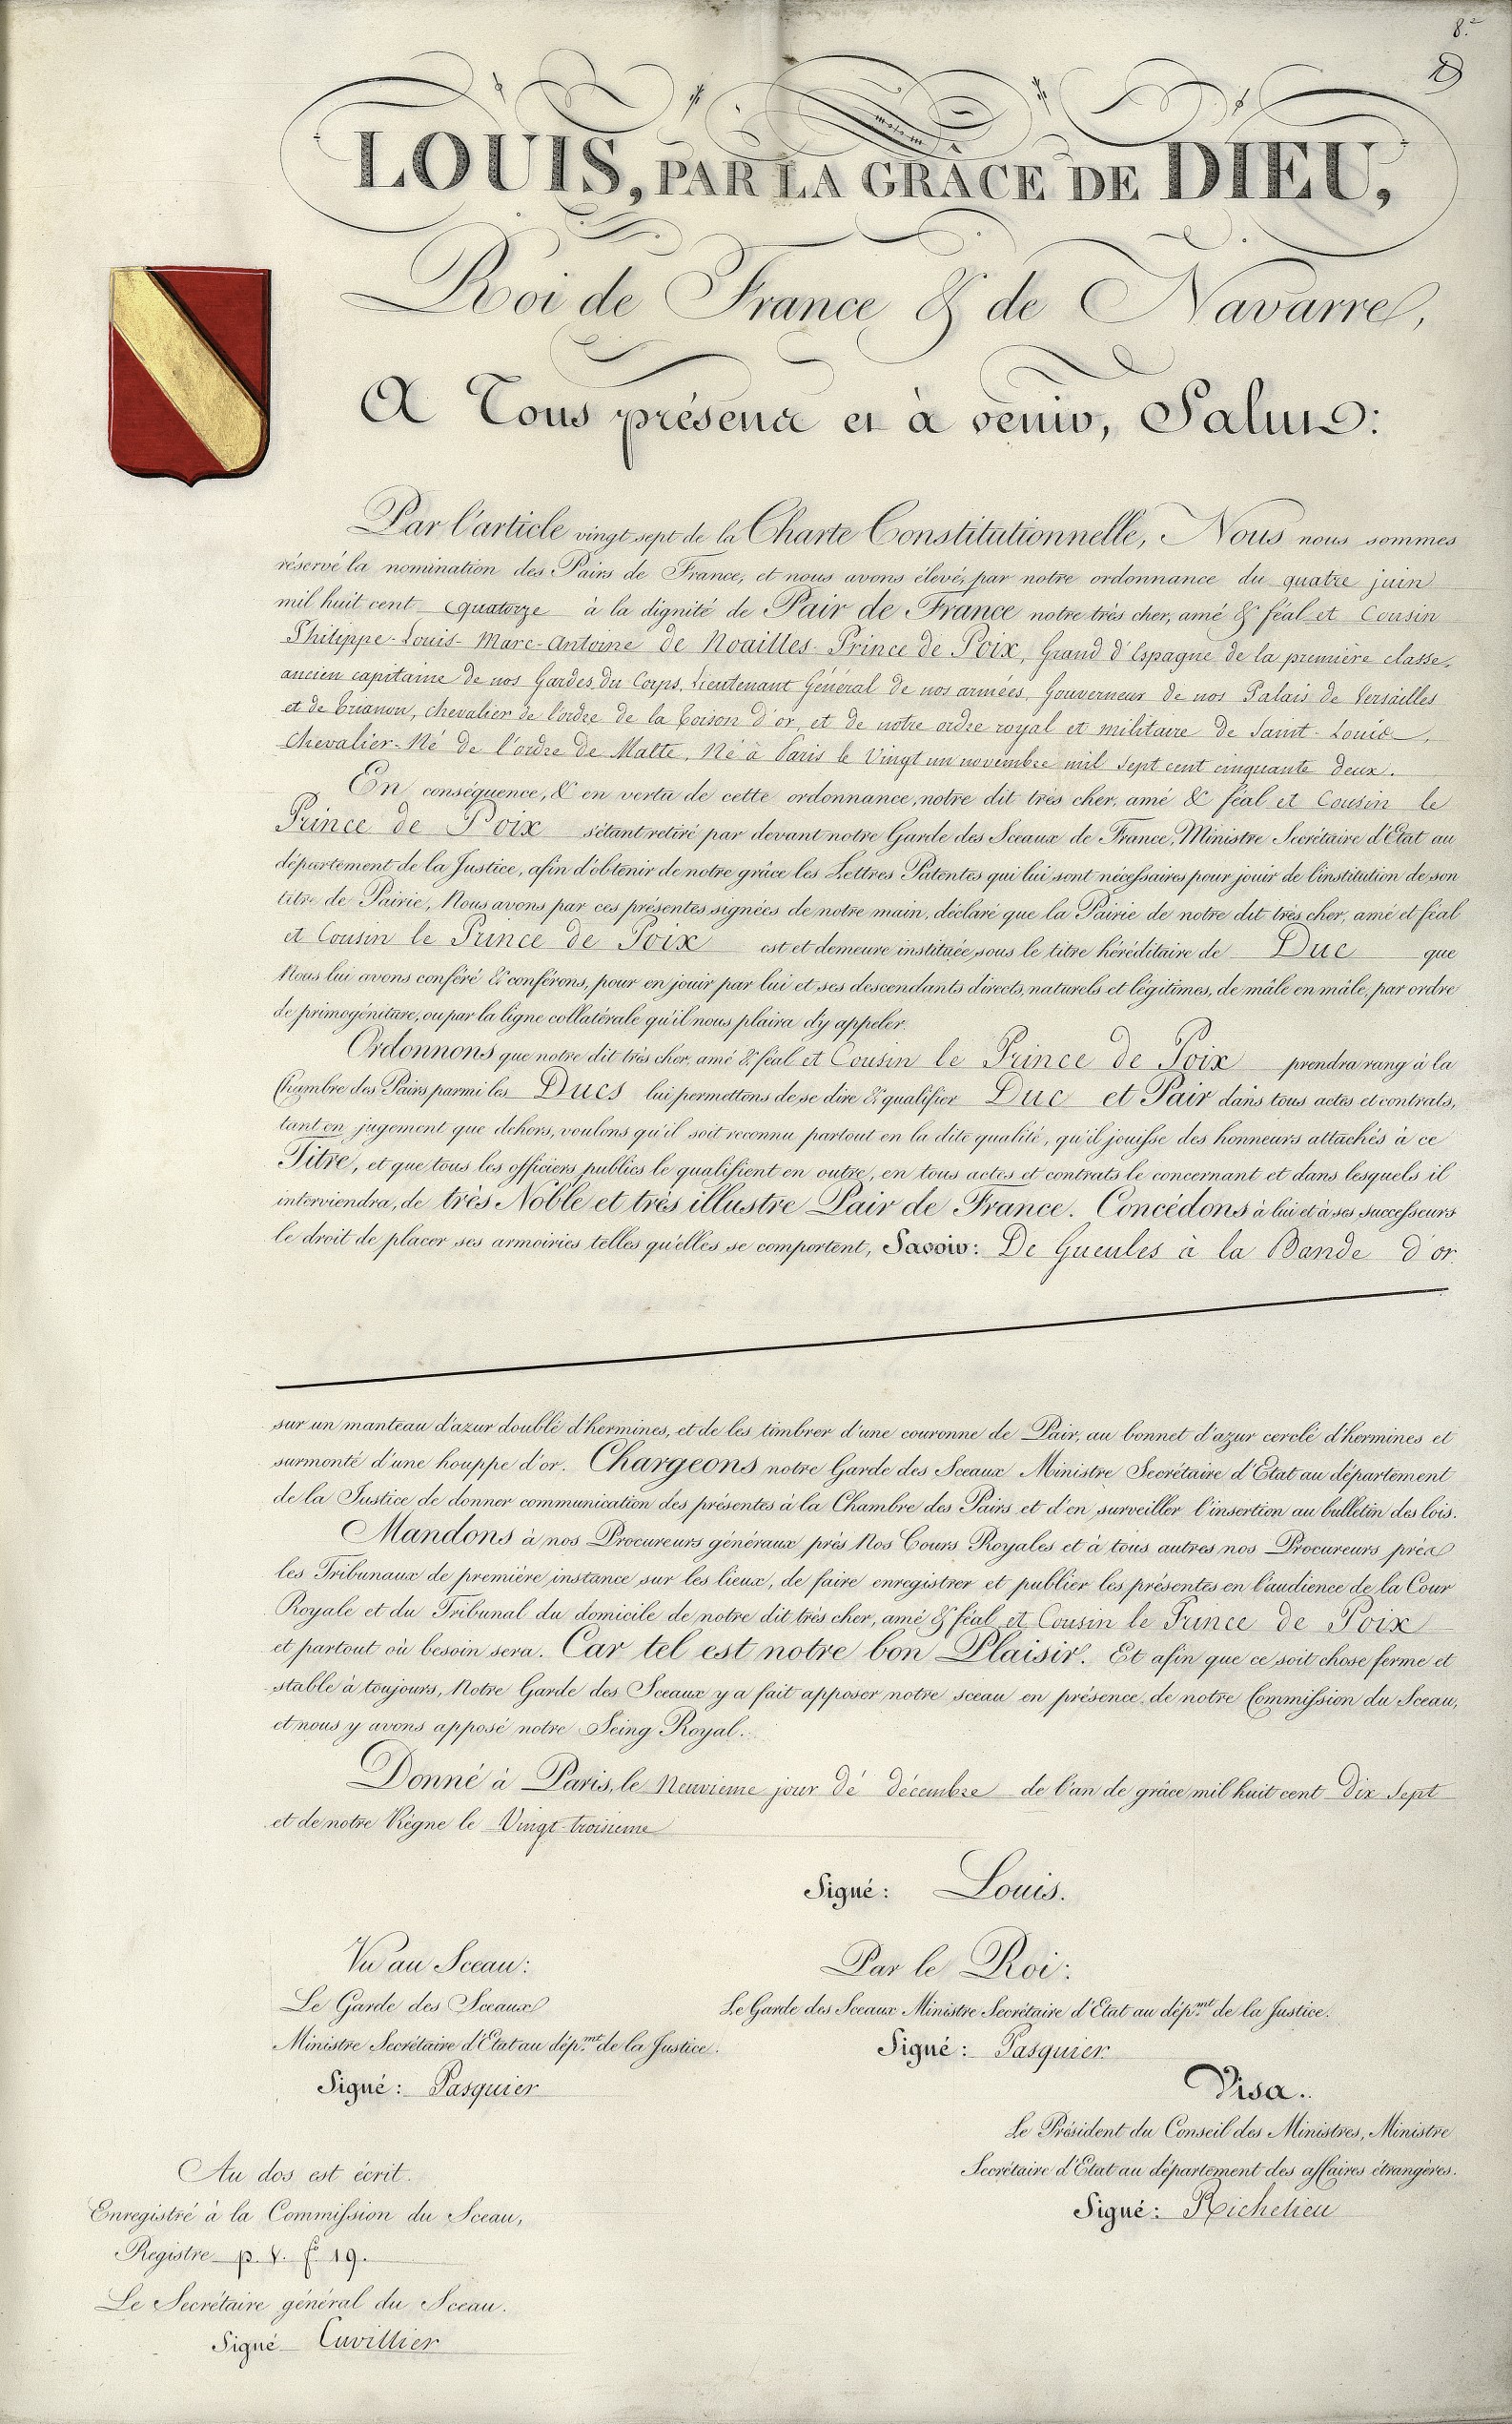 8.e
LOUIS, PAR LA GRÂCE DE DIEU,
Roi de France & de Navarre,
A Tous présens et à venir, Salut:
Par l'article vingt sept de la Charte Constitutionnelle, Nous nous sommes
réservé la nomination des Pairs de France, et nous avons élevé, par notre ordonnance du quatre juin
mil huit cent quatorze à la dignité de Pair de France notre très cher, amé & féal et Cousin
Philippe-Louis-Marc-Antoine de Noailles Prince de Poix, Grand d'Espagne de la première classe,
ancien capitaine de nos Gardes du Corps, Lieutenant Général de nos armées, Gouverneur de nos Palais de Versailles
et de Trianon, chevalier de l'ordre de la Toison d'or, et de notre ordre royal et militaire de Saint-Louis,
Chevalier-Né de l'ordre de Malte, Né à Paris le Vingt un novembre mil sept cent cinquante deux.
En conséquence, & en vertu de cette ordonnance, notre dit très cher, amé & féal et Cousin le
Prince de Poix s'étant retiré par devant notre Garde des Sceaux de France, Ministre Secrétaire d'Etat au
département de la Justice, afin d'obtenir de notre grâce les Lettres Patentes qui lui sont nécessaires pour jouir de l'institution de son
titre de Pairie, Nous avons par ces présentes signées de notre main, déclaré que la Pairie de notre dit très cher, amé et féal
et Cousin le Prince de Poix est et demeure instituée sous le titre héréditaire de Duc que
Nous lui avons conféré & conférons, pour en jouir par lui et ses descendants directs, naturels et légitimes, de mâle en mâle, par ordre
de primogéniture, ou par la ligne collatérale qu'il nous plaira d'y appeler.
Ordonnons que notre dit très cher, amé & féal et Cousin le Prince de Poix prendra rang à la
Chambre des Pairs parmi les Ducs lui permettons de se dire & qualifier Duc et Pair dans tous actes et contrats,
tant en jugement que dehors, voulons qu'il soit reconnu partout en la dite qualité, qu'il jouisse des honneurs attachés à ce
Titre, et que tous les officiers publics le qualifient en outre, en tous actes et contrats le concernant et dans lesquels il
interviendra, de très Noble et très illustre Pair de France. Concédons à lui et à ses successeurs
le droit de placer ses armoiries telles qu'elles se comportent, Savoir: De Gueules à la Bande d'or
sur un manteau d'azur doublé d'hermines, et de les timbrer d'une couronne de Pair, au bonnet d'azur cerclé d'hermines et
surmonté d'une houppe d'or. Chargeons notre Garde des Sceaux Ministre Secrétaire d'Etat au département
de la Justice de donner communication des présentes à la Chambre des Pairs et d'en surveiller l'insertion au bulletin des lois.
Mandons à nos Procureurs généraux près Nos Cours Royales et à tous autres nos Procureurs près
les Tribunaux de première instance sur les lieux, de faire enregistrer et publier les présentes en l'audience de la Cour
Royale et du Tribunal du domicile de notre dit très cher, amé & féal et Cousin le Prince de Poix
et partout où besoin sera. Car tel est notre bon Plaisir. Et afin que ce soit chose ferme et
stable à toujours, Notre Garde des Sceaux y a fait apposer notre sceau en présence de notre Commission du Sceau,
et nous y avons apposé notre Seing Royal.
Donné à Paris, le Neuvieme jour dé décembre de l'an de grâce mil huit cent Dix Sept
et de notre Règne le Vingt-troisieme
Signé: Louis.
Vu au Sceau:
Le Garde des Sceaux
Ministre Secrétaire d'Etat au dép.mt de la Justice.
Signé: Pasquier
Par le Roi:
Le Garde des Sceaux Ministre Secrétaire d'Etat au dép.mt de la Justice.
Signé: Pasquier
Visa.
Le Président du Conseil des Ministres, Ministre
Secrétaire d'Etat au département des affaires étrangères.
Signé: Richelieu
Au dos est écrit.
Enregistré à la Commission du Sceau,
Registre p. V. fo 19.
Le Secrétaire général du Sceau.
Signé Cuvillier